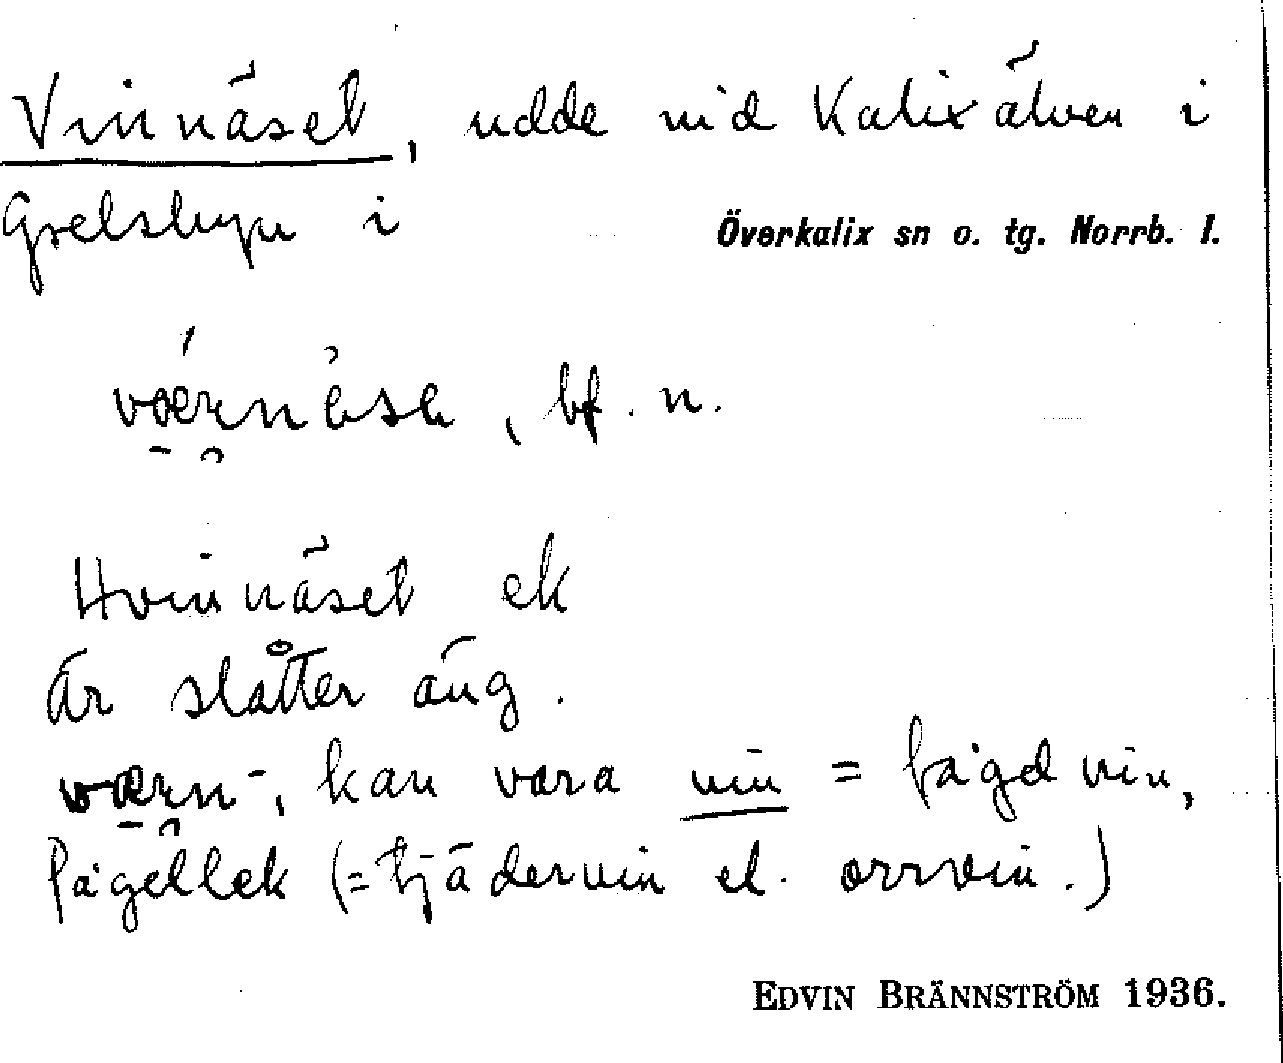 Vinnäset, udde vid Kalixälven i
Grelsbyn i Överkalix sn o. tg. Norrb. l.
bf. n.
Hvinnäset ek
är slåtteräng.
kan vara vin = fågelvin,
fågellek (= tjädervin el. orrvin.)
EDVIN BRÄNNSTRÖM 1936.